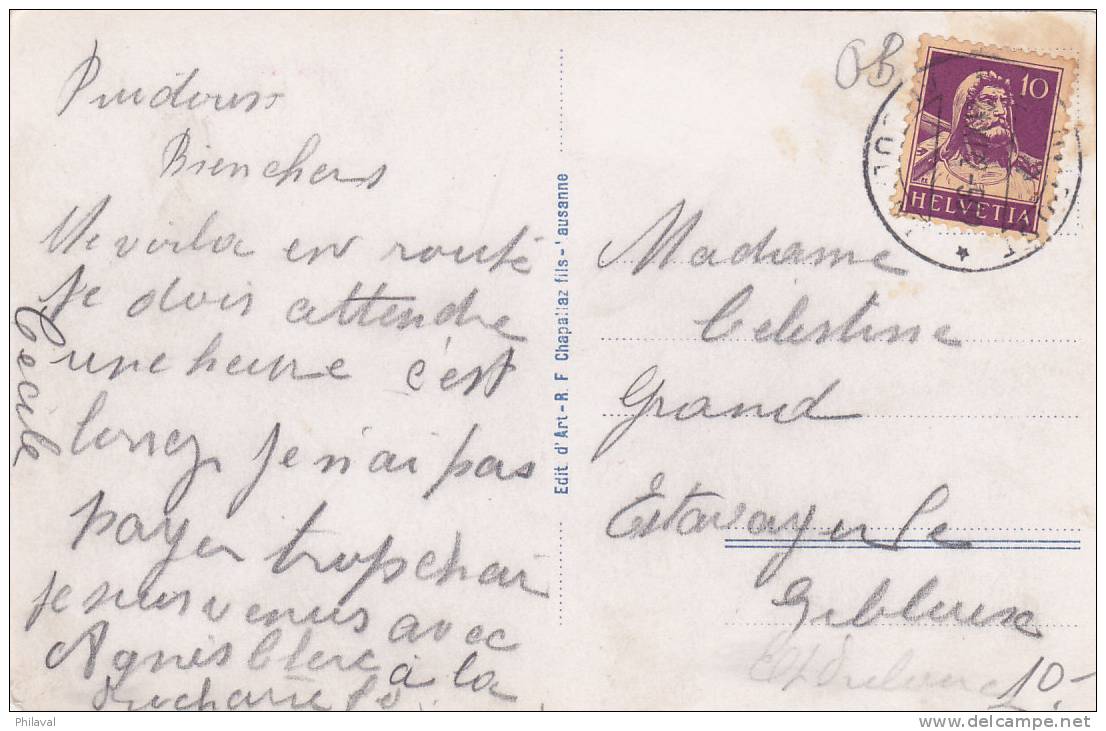 Puidoux
Bien chers
Me voila en route
Je dois attendre
une heure c'est
long Je n'ai pas
payer trop chair
Je suis venus avec
Agnès Clerc à la
Cecile
Edit. d'Art - R. F. Chapallaz fils - Lausanne
OB
10
HELVETIA
Madame
Célestine
Grand
Estavayer le
Gibloux
10-
Philaval
www.delcampe.net